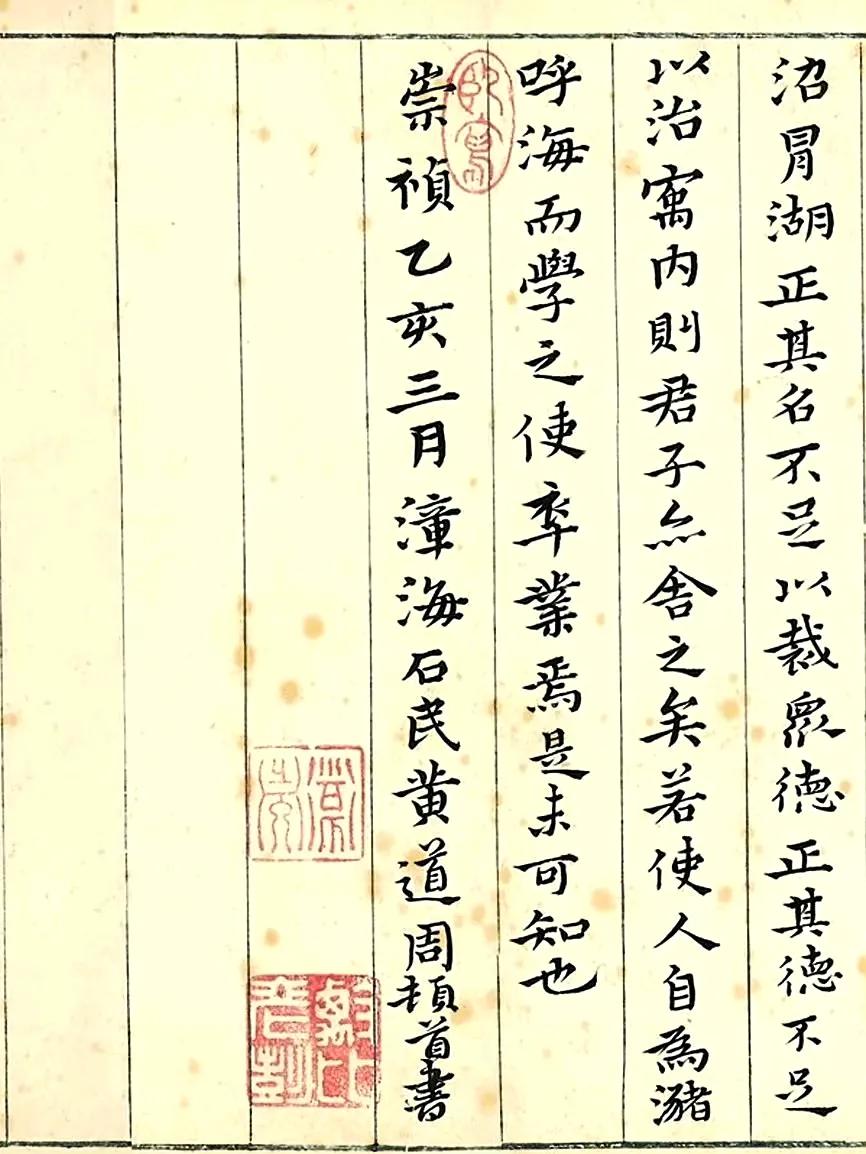 沼冒湖正其名不足以裁衆德正其德不足
以治寓内則君子亦舍之矣若使人自為瀦
呼海而學之使卒業焉是未可知也
崇禎乙亥三月漳海石民黄道周頓首書